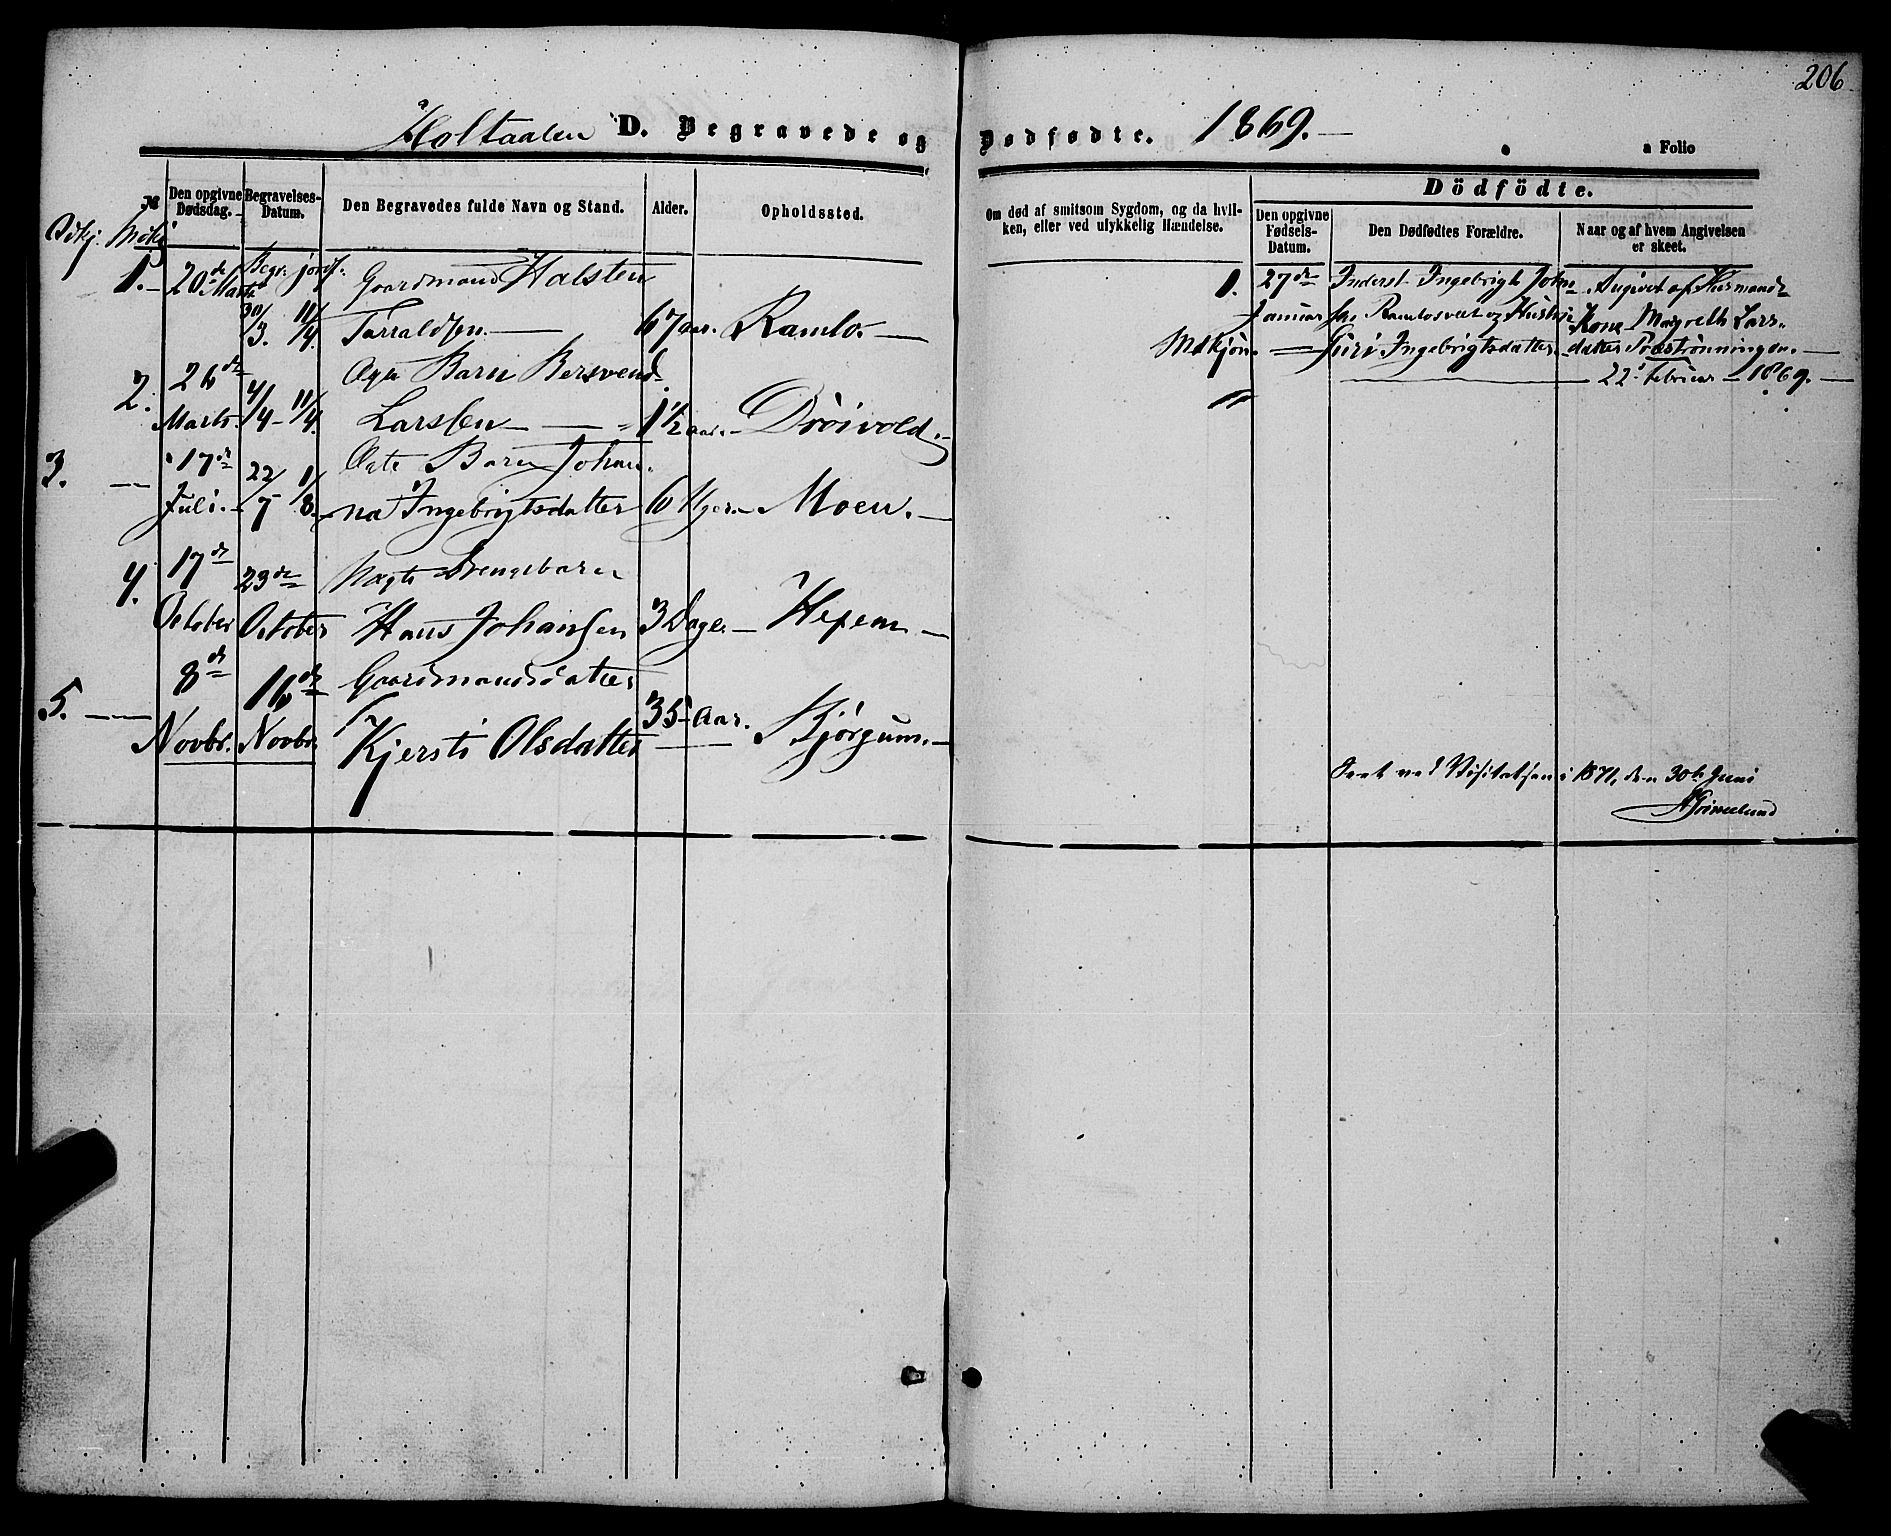 206.
Holtaalen D. Begravede og Dødfødte. 1869.—
a Folio
№
Den opgivne Dødsdag.
Begravelses-Datum.
Den Begravedes fulde Navn og Stand.
Alder.
Opholdssted.
Om død af smitsom Sygdom, og da hvilken, eller ved ulykkelig Hændelse.
Dödfödte.
Den opgivne Fødsels-Datum.
Den Dødfødtes Forældre.
Naar og af hvem Angivelsen er skeet.
Qvkj. Mdkj
Begr. jordf.
1. 20de Marts 30/3. 11/4. Gaardmand Halsten
Tarraldsen.— 67 aar. Ramlo.—
2. 26de Marts 4/4 - 11/4. Ægte Barn Bersvend
Larssen — 1 1/2 aar. Drøivold.—
3. — 17de Juli. 22/7 - 1/8. Ægte Barn Johan-
na Ingebrigtsdatter 6 Uger. Moen.—
4. 17de October 23de October Uægte Drengebarn
Hans Johansen 3 Dage.— Hexem.—
5. — 8de Novbr. 16de Novbr. Gaardmandsdatter
Kjersti Olsdatter 35 Aar. Bjørgum.—
1. 27de Januar
Mdkjøn.
Inderst Ingebrigt John
sen Ramlosvedt og Hustru
Siri Ingebrigtsdatter.
Angivet af Huusmands
Kone Magreth Lars-
datter Præstrønningen.—
22de Februar 1869.—
Seet ved Visitatsen i 1871, den 30te Juni
AGrimelund